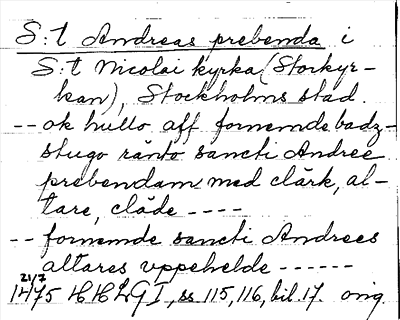 S:t Andreas prebenda i
S:t Nicolai kyrka (Storkyr-
kan), Stockholms stad.
-- ok hullo aff fornemde badz-
stugo ränto sancti Andree
prebendam med clärk, al-
tare, cläde ----
-- fornemde sancti Andrees
altares uppehelde ------
21/7
1475 HHLG I, ss 115, 116, bil. 17. orig.